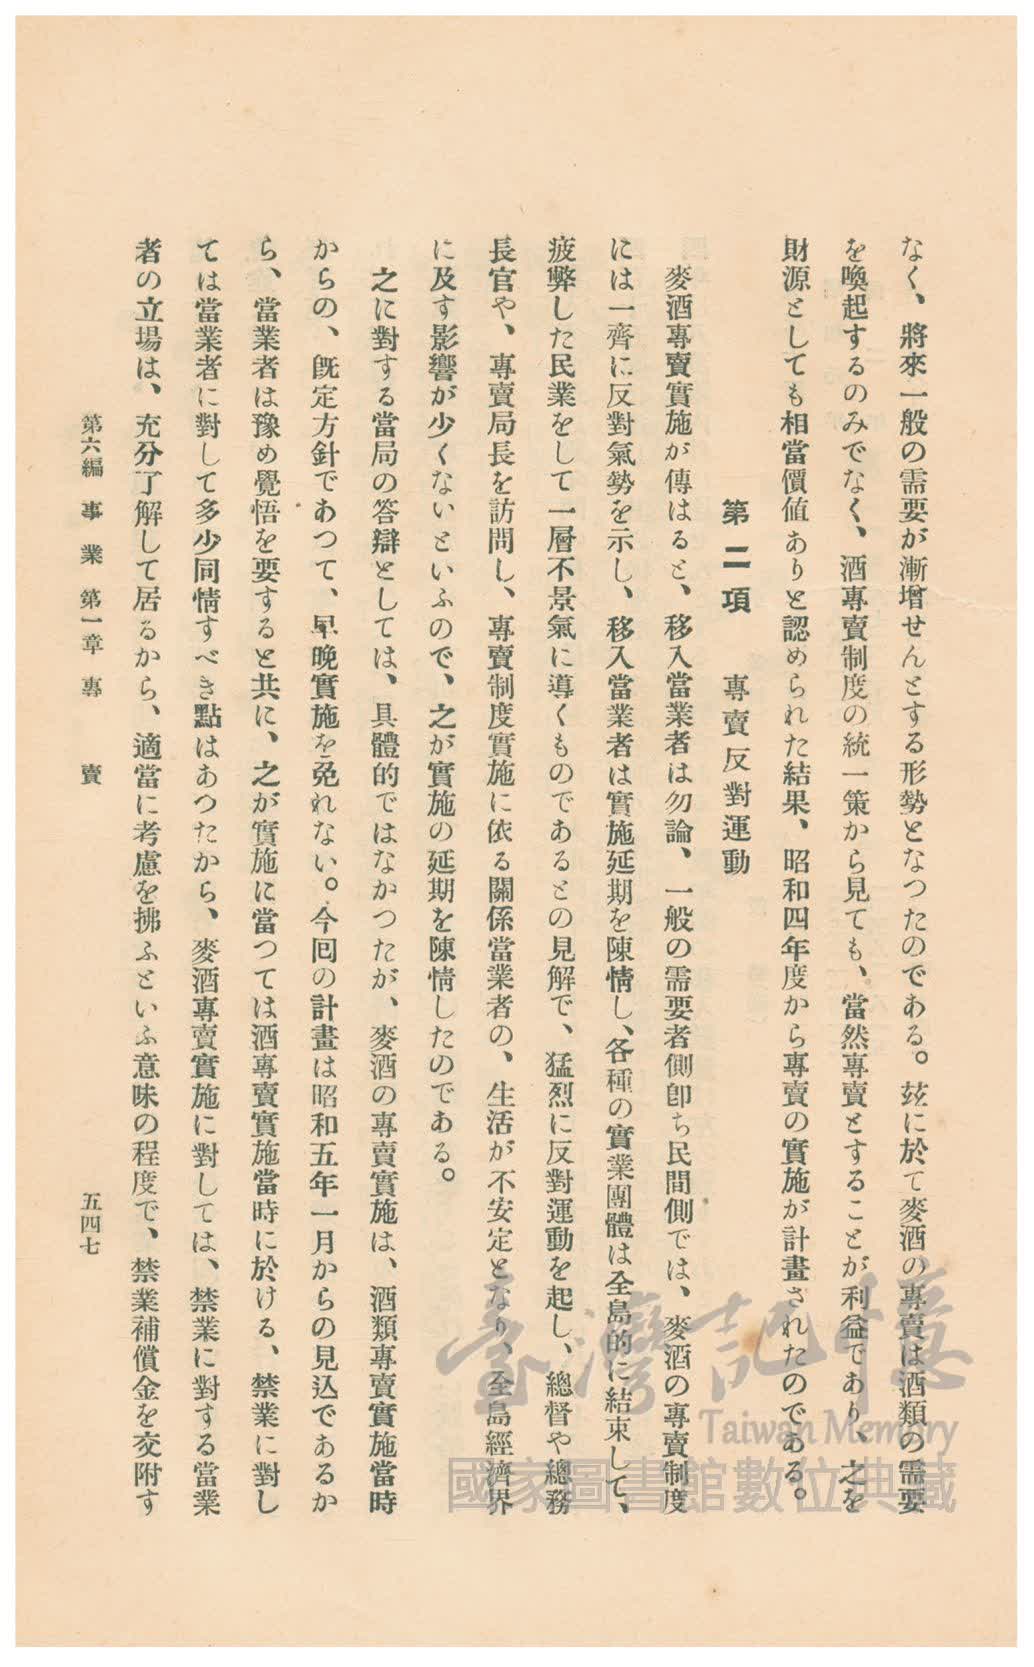 なく、將來一般の需要が漸增せんとする形勢となつたのである。玆に於て麥酒の專賣は酒類の需要
を喚起するのみでなく、酒專賣制度の統一策から見ても、當然專賣とすることが利益であり、之を
財源としても相當價値ありと認められた結果、昭和四年度から專賣の實施が計畫されたのである。
第二項　專賣反對運動
麥酒專賣實施が傳はると、移入當業者は勿論、一般の需要者側卽ち民間側では、麥酒の專賣制度
には一齊に反對氣勢を示し、移入當業者は實施延期を陳情し、各種の實業團體は全島的に結束して、
疲弊した民業をして一層不景氣に導くものであるとの見解で、猛烈に反對運動を起し、總督や總務
長官や、專賣局長を訪問し、專賣制度實施に依る關係當業者の、生活が不安定となり、全島經濟界
に及す影響が少くないといふので、之が實施の延期を陳情したのである。
之に對する當局の答辯としては、具體的ではなかつたが、麥酒の專賣實施は、酒類專賣實施當時
からの、旣定方針であつて、早晚實施を免れない。今囘の計畫は昭和五年一月からの見込であるか
ら、當業者は豫め覺悟を要すると共に、之が實施に當つては酒專賣實施當時に於ける、禁業に對し
ては當業者に對して多少同情すべき點はあつたから、麥酒專賣實施に對しては、禁業に對する當業
者の立場は、充分了解して居るから、適當に考慮を拂ふといふ意味の程度で、禁業補償金を交附す
第六編　事業　第一章　專賣
五四七
臺灣記憶
Taiwan Memory
國家圖書館數位典藏